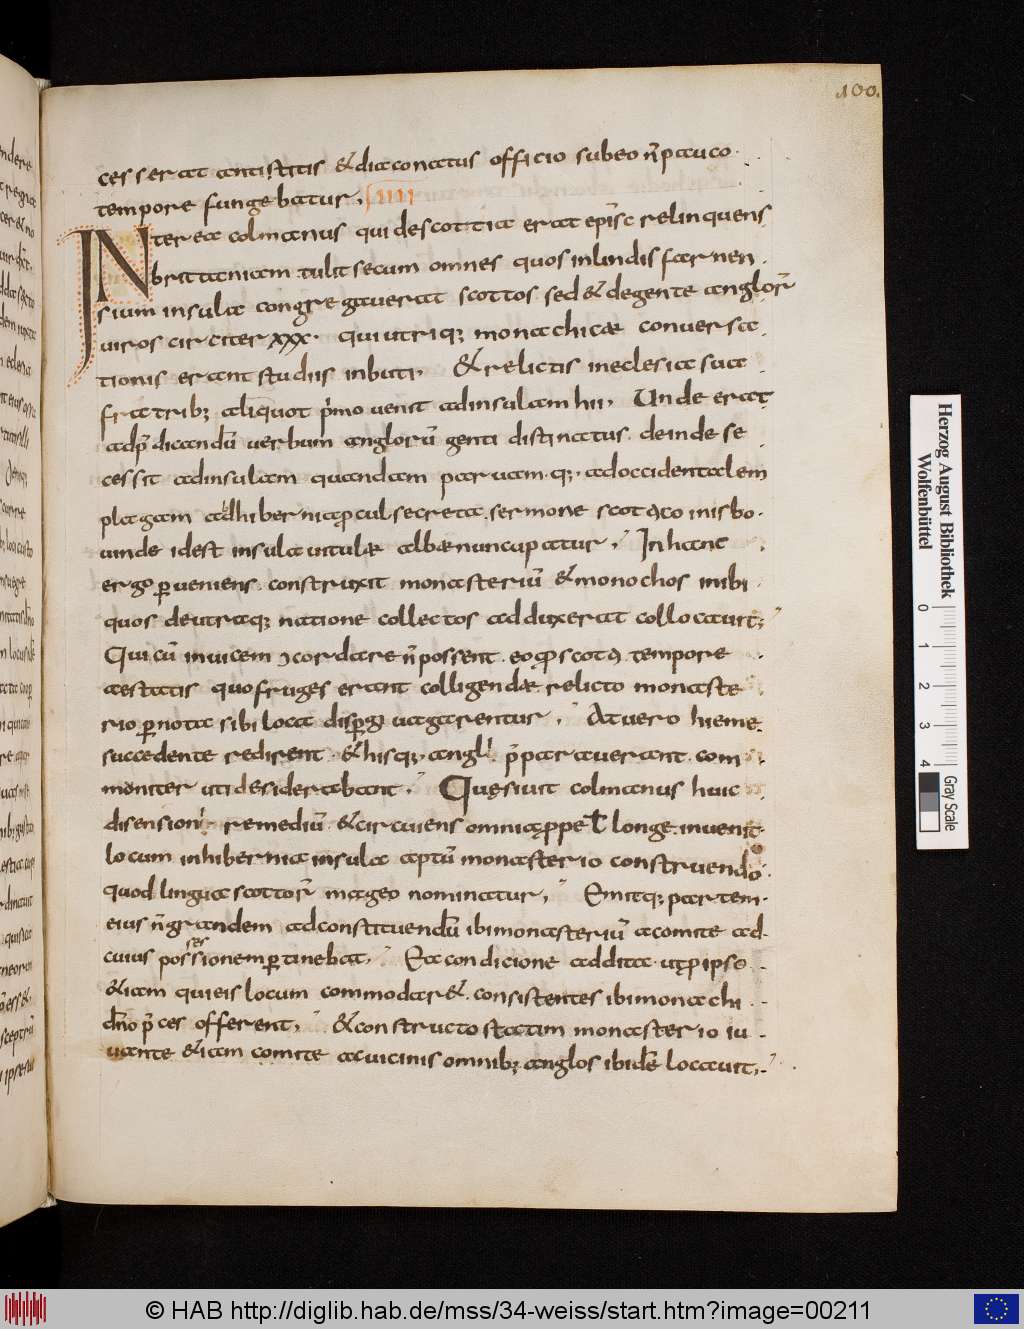 100.
cesserat antistitis & diaconatus officio subeo n̄ pauco.
tempore fungebatur, IIII
INterea colmanus qui descottia erat ep̄isc relinquens
brittaniam tulit secum omnes quos inlindisfarnen
sium insula congregauerat scottos sed & degente anglor̄
uiros circiter xxx. qui utriq; monachicæ conuersa
tionis erant studiis inbuti, & relictis ineclesia sua
fratrib; aliquot p̄mo uenit adinsulam hii, Unde erat
adp̄dicandū uerbum anglorū genti distinatus. deinde se
cessit adinsulam quandam paruam. q;. adoccidentalem
plagam adhiberniaꝓcul secreta. sermone scotaco inisbo.
uinde idest insula uitulæ albæ nuncupatur, Inhanc
ergo ꝑueniens. construxit monasteriū & monochos inibi
quos deutraq; natione collectos adduxerat collocauit;
Quicū inuicem ɔcordare n̄ possent. eo ꝙ scota tempore
aestatis quo fruges erant colligendæ relicto monaste
rio ꝑnota sibi loca disꝑgi uagarentur, At uero hieme
succedente redirent. & hisq; angl p̄parauerant. com
moniter uti desiderabant, Quęsiuit colmanus huic
disension remediū. & circuiens omnia ꝓpe ł longe. inuenit
locum inhibernia insula aptū monasterio construendo.
quod lingua scottor̄ mageo nominatur, Emitq; partem.
eius n̄ grandem adconstituendū ibimonasteriū acomite ad.
cuius possessionem ꝑtinebat, Ea condicione addita. utꝓipso
&iam quieis locum commodar&. consistentes ibimonachi
dn̄o p̄ces offerent, & constructo statim monasterio iu
uante &iam comite acuicinis omnib; anglos ibidē locauit,
Herzog August Bibliothek
Wolfenbüttel
0 1 2 3 4
Gray Scale
© HAB http://diglib.hab.de/mss/34-weiss/start.htm?image=00211